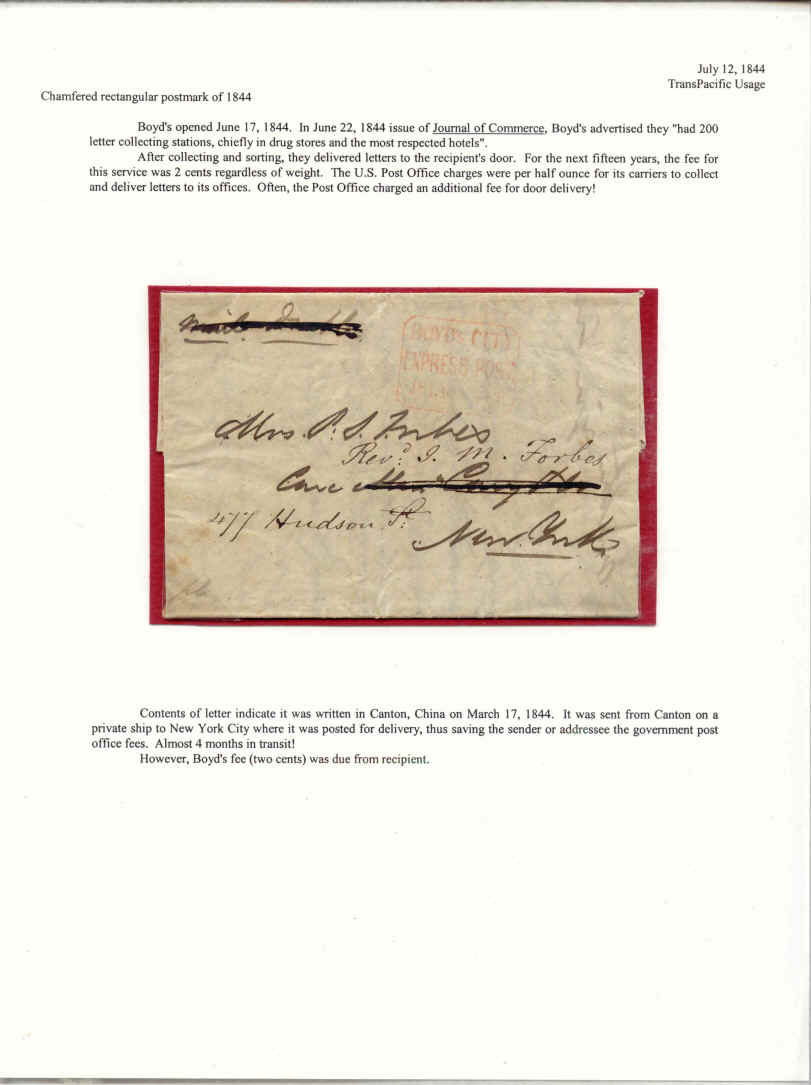 July 12, 1844
TransPacific Usage
Chamfered rectangular postmark of 1844
Boyd's opened June 17, 1844. In June 22, 1844 issue of Journal of Commerce, Boyd's advertised they "had 200
letter collecting stations, chiefly in drug stores and the most respected hotels".
After collecting and sorting, they delivered letters to the recipient's door. For the next fifteen years, the fee for
this service was 2 cents regardless of weight. The U.S. Post Office charges were per half ounce for its carriers to collect
and deliver letters to its offices. Often, the Post Office charged an additional fee for door delivery!
BOYD'S CITY
EXPRESS POST
Mrs. P. S. Forbes
Revd. J. M. Forbes
Care
477 Hudson St.
New York
Contents of letter indicate it was written in Canton, China on March 17, 1844. It was sent from Canton on a
private ship to New York City where it was posted for delivery, thus saving the sender or addressee the government post
office fees. Almost 4 months in transit!
However, Boyd's fee (two cents) was due from recipient.